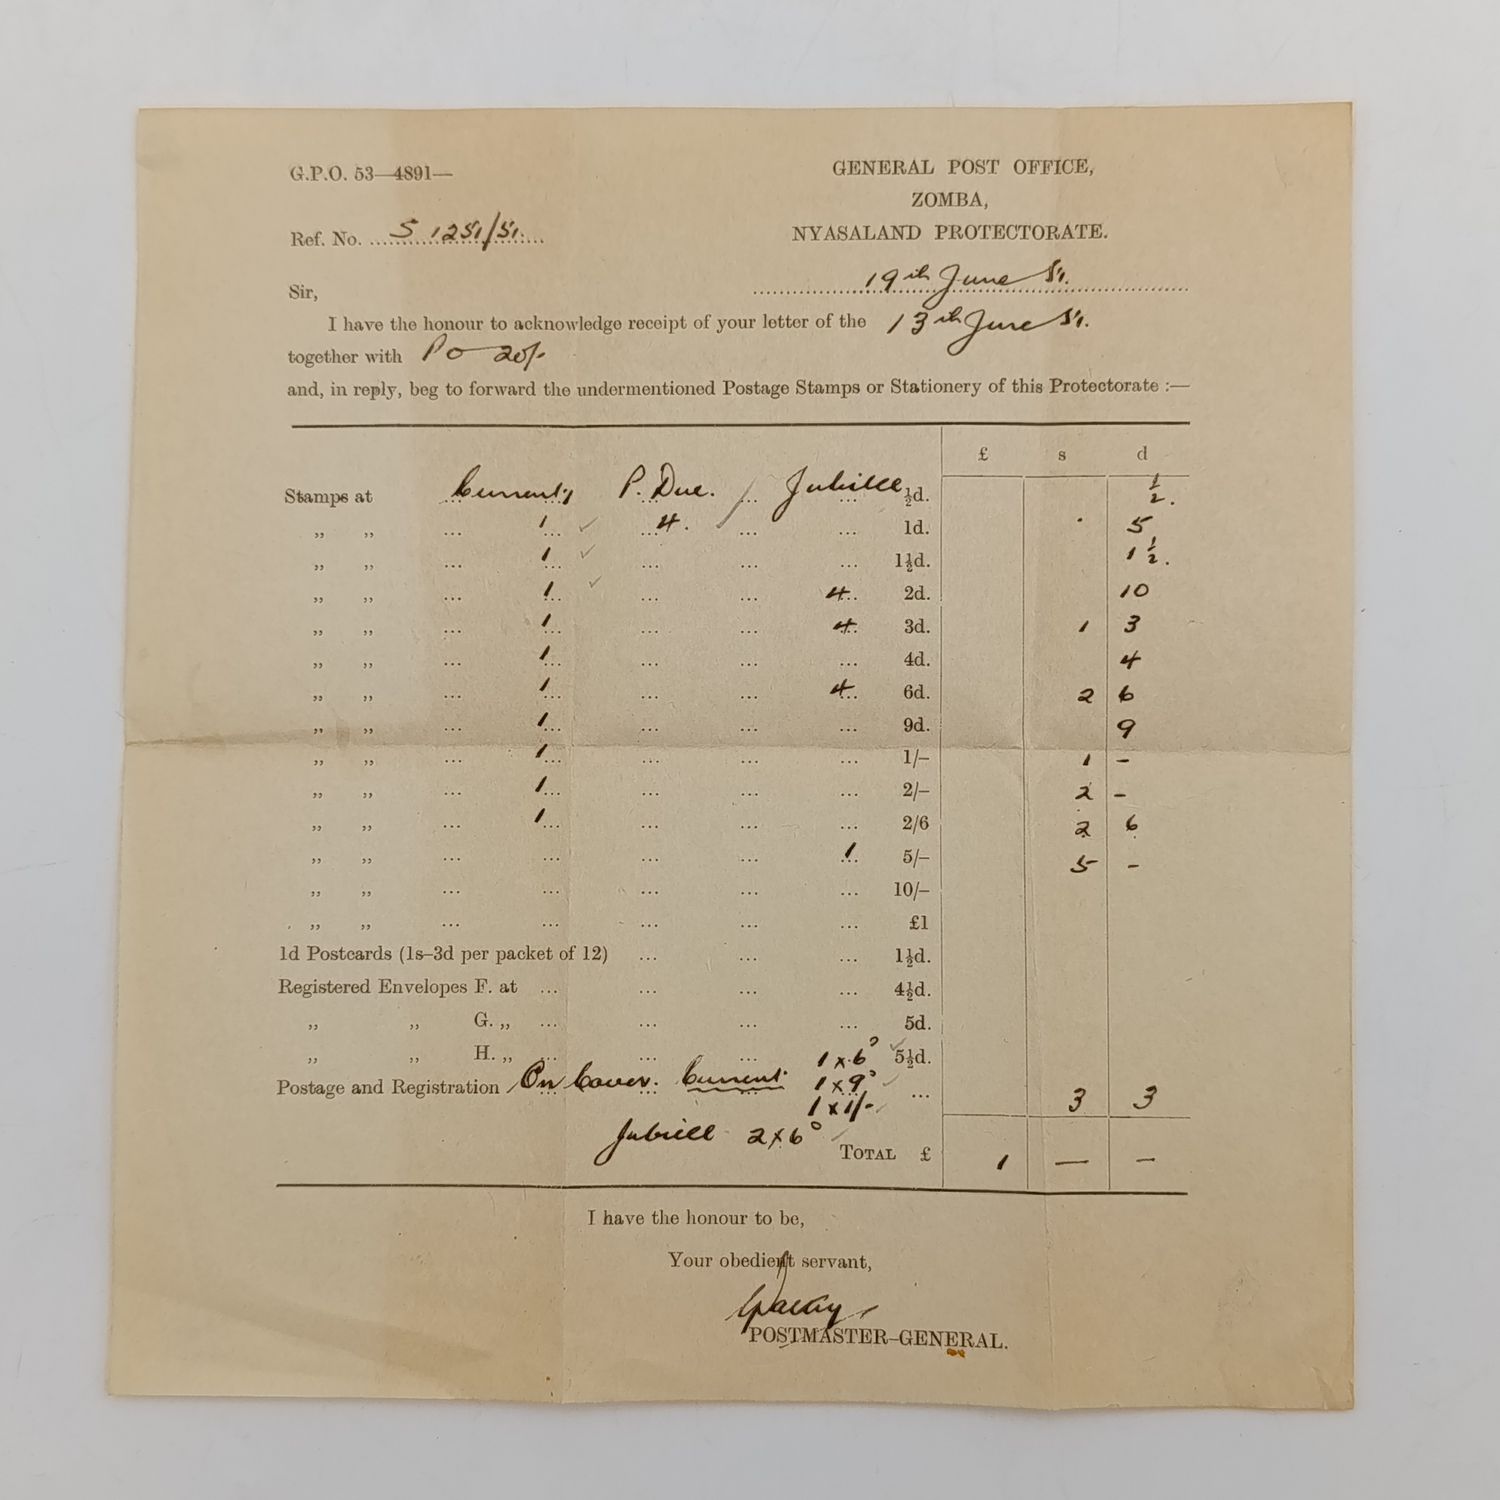 G.P.O. 53—4891—
GENERAL POST OFFICE,
ZOMBA,
NYASALAND PROTECTORATE.
Ref. No. S 1251/51.
19th June 51.
Sir,
I have the honour to acknowledge receipt of your letter of the 13th June 51.
together with PO 20/-
and, in reply, beg to forward the undermentioned Postage Stamps or Stationery of this Protectorate :—
£ s d
Stamps at Current, P. Due. / Jubilee ½d. ½.
„ „ ... 1 ... 4. ... ... 1d. 5
„ „ ... 1 ... ... ... ... 1½d. 1½.
„ „ ... 1 ... ... ... 4 2d. 10
„ „ ... 1 ... ... ... 4 3d. 1 3
„ „ ... 1 ... ... ... ... 4d. 4
„ „ ... 1 ... ... ... 4 6d. 2 6
„ „ ... 1 ... ... ... ... 9d. 9
„ „ ... 1 ... ... ... ... 1/– 1 –
„ „ ... 1 ... ... ... ... 2/– 2 –
„ „ ... 1 ... ... ... ... 2/6 2 6
„ „ ... ... ... ... 1 5/– 5 –
„ „ ... ... ... ... ... 10/–
„ „ ... ... ... ... ... £1
1d Postcards (1s–3d per packet of 12) ... ... ... 1½d.
Registered Envelopes F. at ... ... ... ... 4½d.
„ „ G. „ ... ... ... ... 5d.
„ „ H. „ ... ... ... 1 x 6d 5½d.
Postage and Registration On Cover. Current. 1 x 9d ... 3 3
1 x 1/-
Jubilee 2 x 6d
TOTAL £ 1 — —
I have the honour to be,
Your obedient servant,
POSTMASTER–GENERAL.